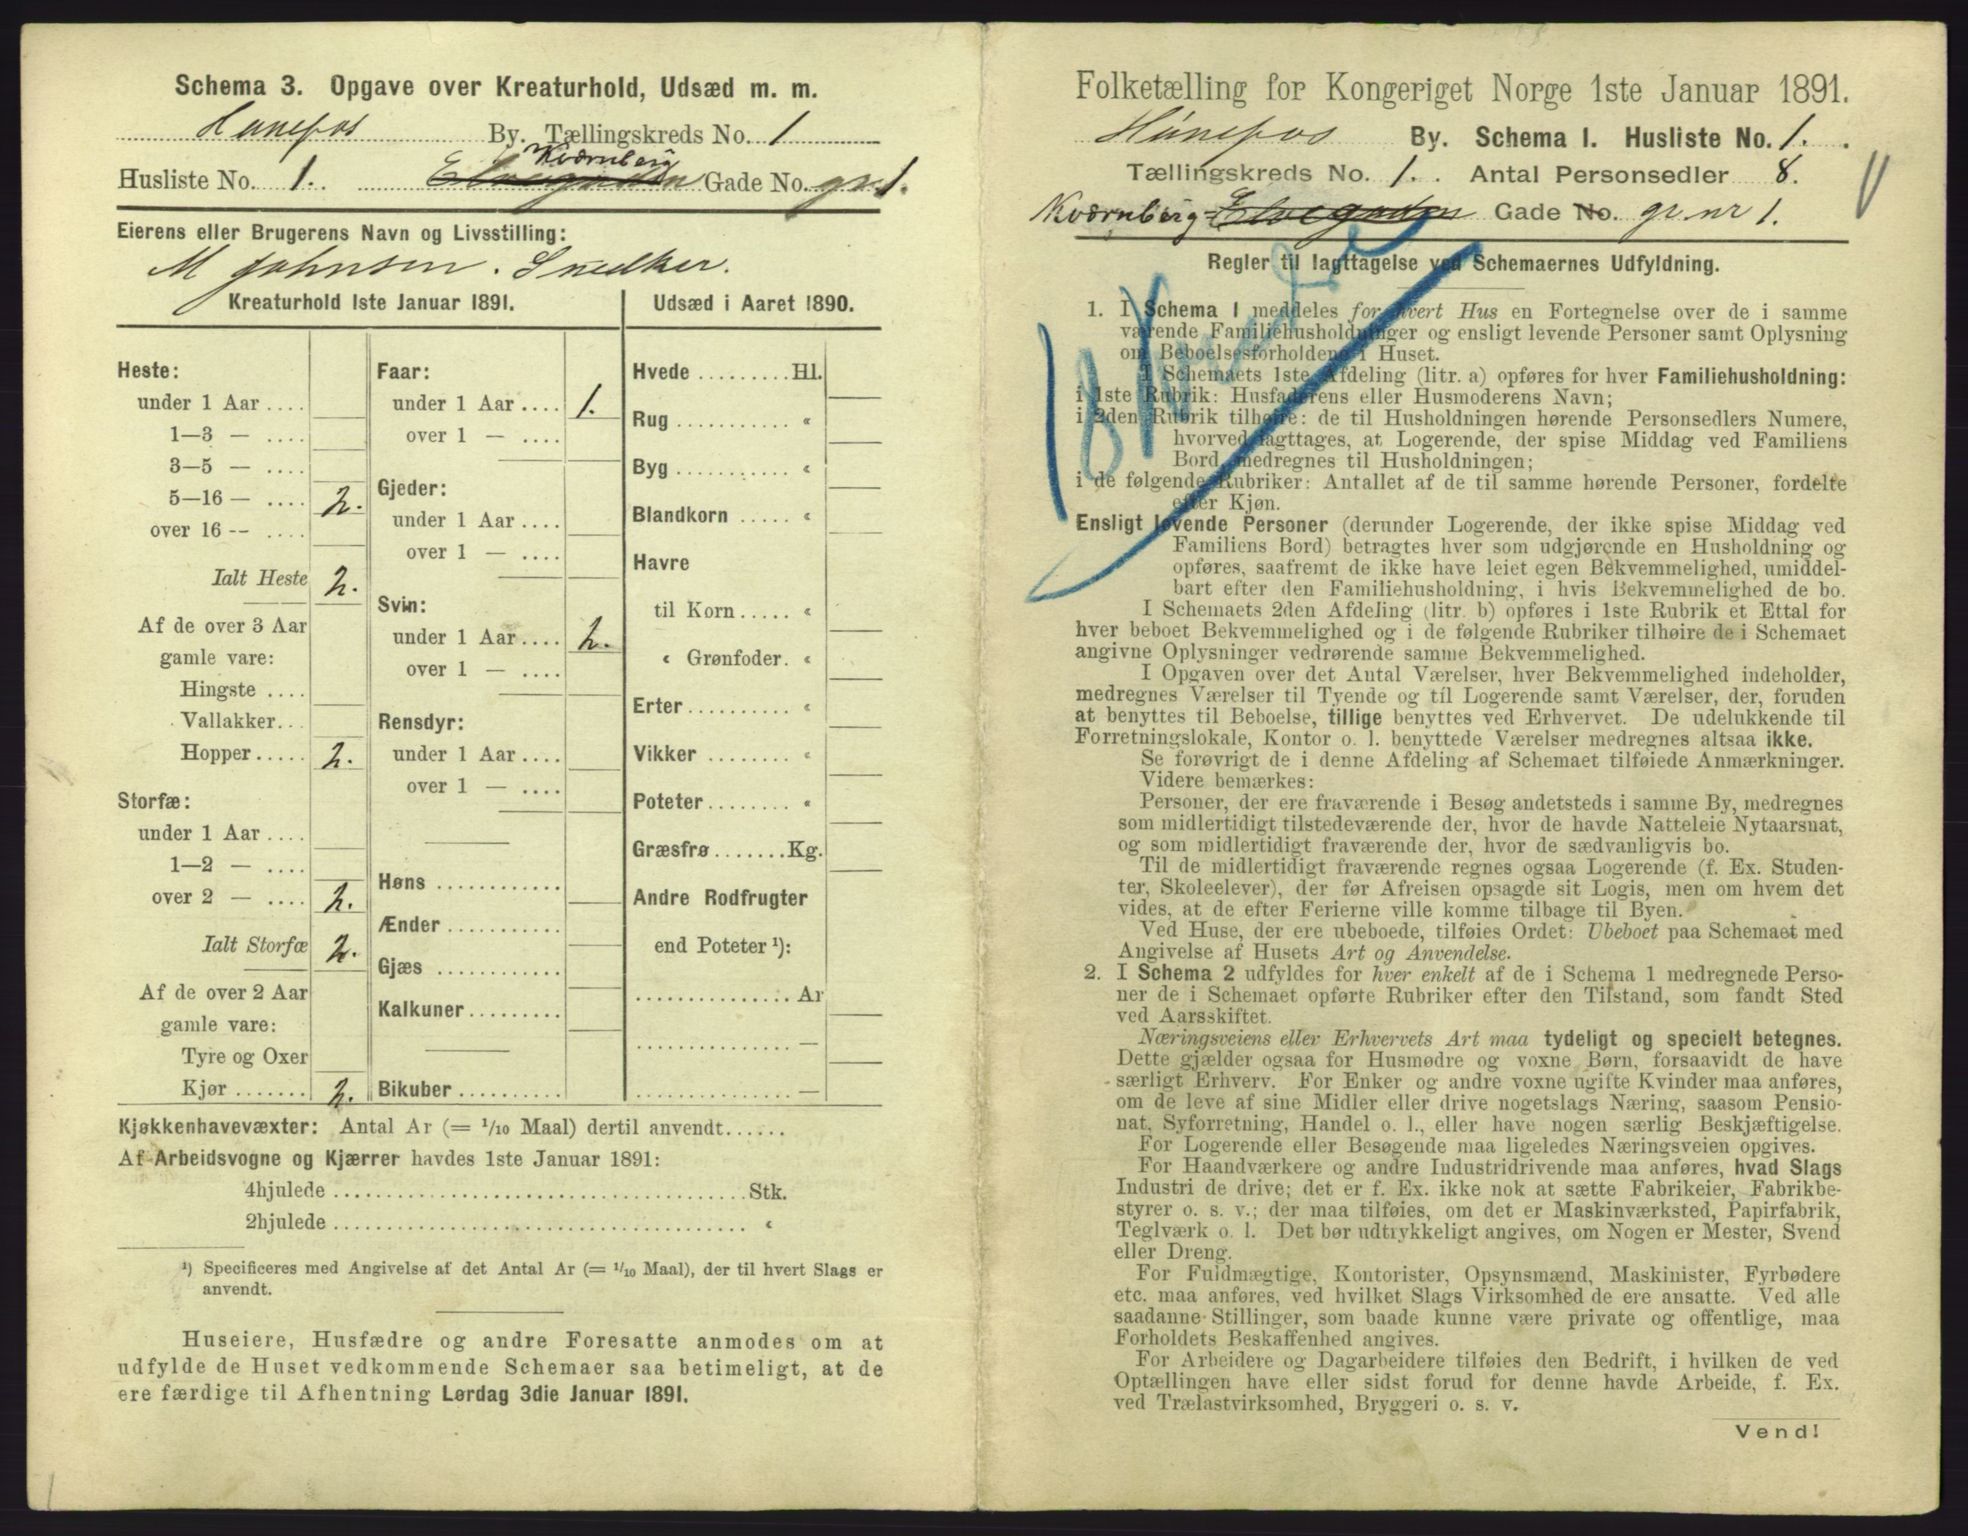 Schema 3. Opgave over Kreaturhold, Udsæd m. m.
Hønefos By. Tællingskreds No. 1
Kværnberg
Husliste No. 1. Elvegaden Gade No. gr. 1.
Eierens eller Brugerens Navn og Livsstilling:
M Johnsen. Snedker.
Kreaturhold 1ste Januar 1891.
Heste:
under 1 Aar ....
1—3 — ....
3—5 — ....
5—16 — .... 2.
over 16 — ....
Ialt Heste 2.
Af de over 3 Aar
gamle vare:
Hingste ....
Vallakker...
Hopper..... 2.
Storfæ:
under 1 Aar ....
1—2 — ....
over 2 — .... 2.
Ialt Storfæ 2.
Af de over 2 Aar
gamle vare:
Tyre og Oxer
Kjør ....... 2.
Faar:
under 1 Aar .... 1.
over 1 — ....
Gjeder:
under 1 Aar ....
over 1 — ....
Svin:
under 1 Aar .... 2.
over 1 — ....
Rensdyr:
under 1 Aar ....
over 1 — ....
Høns ............
Ænder ...........
Gjæs ............
Kalkuner.........
Bikuber ..........
Udsæd i Aaret 1890.
Hvede .........Hl.
Rug ........... «
Byg ........... «
Blandkorn ..... «
Havre
til Korn ..... «
« Grønfoder. «
Erter.......... «
Vikker ........ «
Poteter........ «
Græsfrø.......Kg.
Andre Rodfrugter
end Poteter ¹):
............... Ar
............... —
............... —
Kjøkkenhavevæxter: Antal Ar (= 1/10 Maal) dertil anvendt......
Af Arbeidsvogne og Kjærrer havdes 1ste Januar 1891:
4hjulede ........................................Stk.
2hjulede ........................................ «
¹) Specificeres med Angivelse af det Antal Ar (= 1/10 Maal), der til hvert Slags er
anvendt.
Huseiere, Husfædre og andre Foresatte anmodes om at
udfylde de Huset vedkommende Schemaer saa betimeligt, at de
ere færdige til Afhentning Lørdag 3die Januar 1891.
Folketælling for Kongeriget Norge 1ste Januar 1891.
Hønefos By. Schema 1. Husliste No. 1.
Tællingskreds No. 1. Antal Personsedler 8.
Kværnberg- Elvegaden Gade No. gr. nr 1.
Regler til Iagttagelse ved Schemaernes Udfyldning.
1. I Schema 1 meddeles for hvert Hus en Fortegnelse over de i samme
værende Familiehusholdninger og ensligt levende Personer samt Oplysning
om Beboelsesforholdene i Huset.
I Schemaets 1ste Afdeling (litr. a) opføres for hver Familiehusholdning:
i 1ste Rubrik: Husfaderens eller Husmoderens Navn;
i 2den Rubrik tilhøire: de til Husholdningen hørende Personsedlers Numere,
hvorved iagttages, at Logerende, der spise Middag ved Familiens
Bord, medregnes til Husholdningen;
i de følgende Rubriker: Antallet af de til samme hørende Personer, fordelte
efter Kjøn.
Ensligt levende Personer (derunder Logerende, der ikke spise Middag ved
Familiens Bord) betragtes hver som udgjørende en Husholdning og
opføres, saafremt de ikke have leiet egen Bekvemmelighed, umiddel-
bart efter den Familiehusholdning, i hvis Bekvemmelighed de bo.
I Schemaets 2den Afdeling (litr. b) opføres i 1ste Rubrik et Ettal for
hver beboet Bekvemmelighed og i de følgende Rubriker tilhøire de i Schemaet
angivne Oplysninger vedrørende samme Bekvemmelighed.
I Opgaven over det Antal Værelser, hver Bekvemmelighed indeholder,
medregnes Værelser til Tyende og til Logerende samt Værelser, der, foruden
at benyttes til Beboelse, tillige benyttes ved Erhvervet. De udelukkende til
Forretningslokale, Kontor o. l. benyttede Værelser medregnes altsaa ikke.
Se forøvrigt de i denne Afdeling af Schemaet tilføiede Anmærkninger.
Videre bemærkes:
Personer, der ere fraværende i Besøg andetsteds i samme By, medregnes
som midlertidigt tilstedeværende der, hvor de havde Natteleie Nytaarsnat,
og som midlertidigt fraværende der, hvor de sædvanligvis bo.
Til de midlertidigt fraværende regnes ogsaa Logerende (f. Ex. Studen-
ter, Skoleelever), der før Afreisen opsagde sit Logis, men om hvem det
vides, at de efter Ferierne ville komme tilbage til Byen.
Ved Huse, der ere ubeboede, tilføies Ordet: Ubeboet paa Schemaet med
Angivelse af Husets Art og Anvendelse.
2. I Schema 2 udfyldes for hver enkelt af de i Schema 1 medregnede Perso-
ner de i Schemaet opførte Rubriker efter den Tilstand, som fandt Sted
ved Aarsskiftet.
Næringsveiens eller Erhvervets Art maa tydeligt og specielt betegnes.
Dette gjælder ogsaa for Husmødre og voxne Børn, forsaavidt de have
særligt Erhverv. For Enker og andre voxne ugifte Kvinder maa anføres,
om de leve af sine Midler eller drive nogetslags Næring, saasom Pensio-
nat, Syforretning, Handel o. l., eller have nogen særlig Beskjæftigelse.
For Logerende eller Besøgende maa ligeledes Næringsveien opgives.
For Haandværkere og andre Industridrivende maa anføres, hvad Slags
Industri de drive; det er f. Ex. ikke nok at sætte Fabrikeier, Fabrikbe-
styrer o. s. v.; der maa tilføies, om det er Maskinværksted, Papirfabrik,
Teglværk o. l. Det bør udtrykkeligt angives, om Nogen er Mester, Svend
eller Dreng.
For Fuldmægtige, Kontorister, Opsynsmænd, Maskinister, Fyrbødere
etc. maa anføres, ved hvilket Slags Virksomhed de ere ansatte. Ved alle
saadanne Stillinger, som baade kunne være private og offentlige, maa
Forholdets Beskaffenhed angives.
For Arbeidere og Dagarbeidere tilføies den Bedrift, i hvilken de ved
Optællingen have eller sidst forud for denne havde Arbeide, f. Ex.
ved Trælastvirksomhed, Bryggeri o. s. v.
Vend!